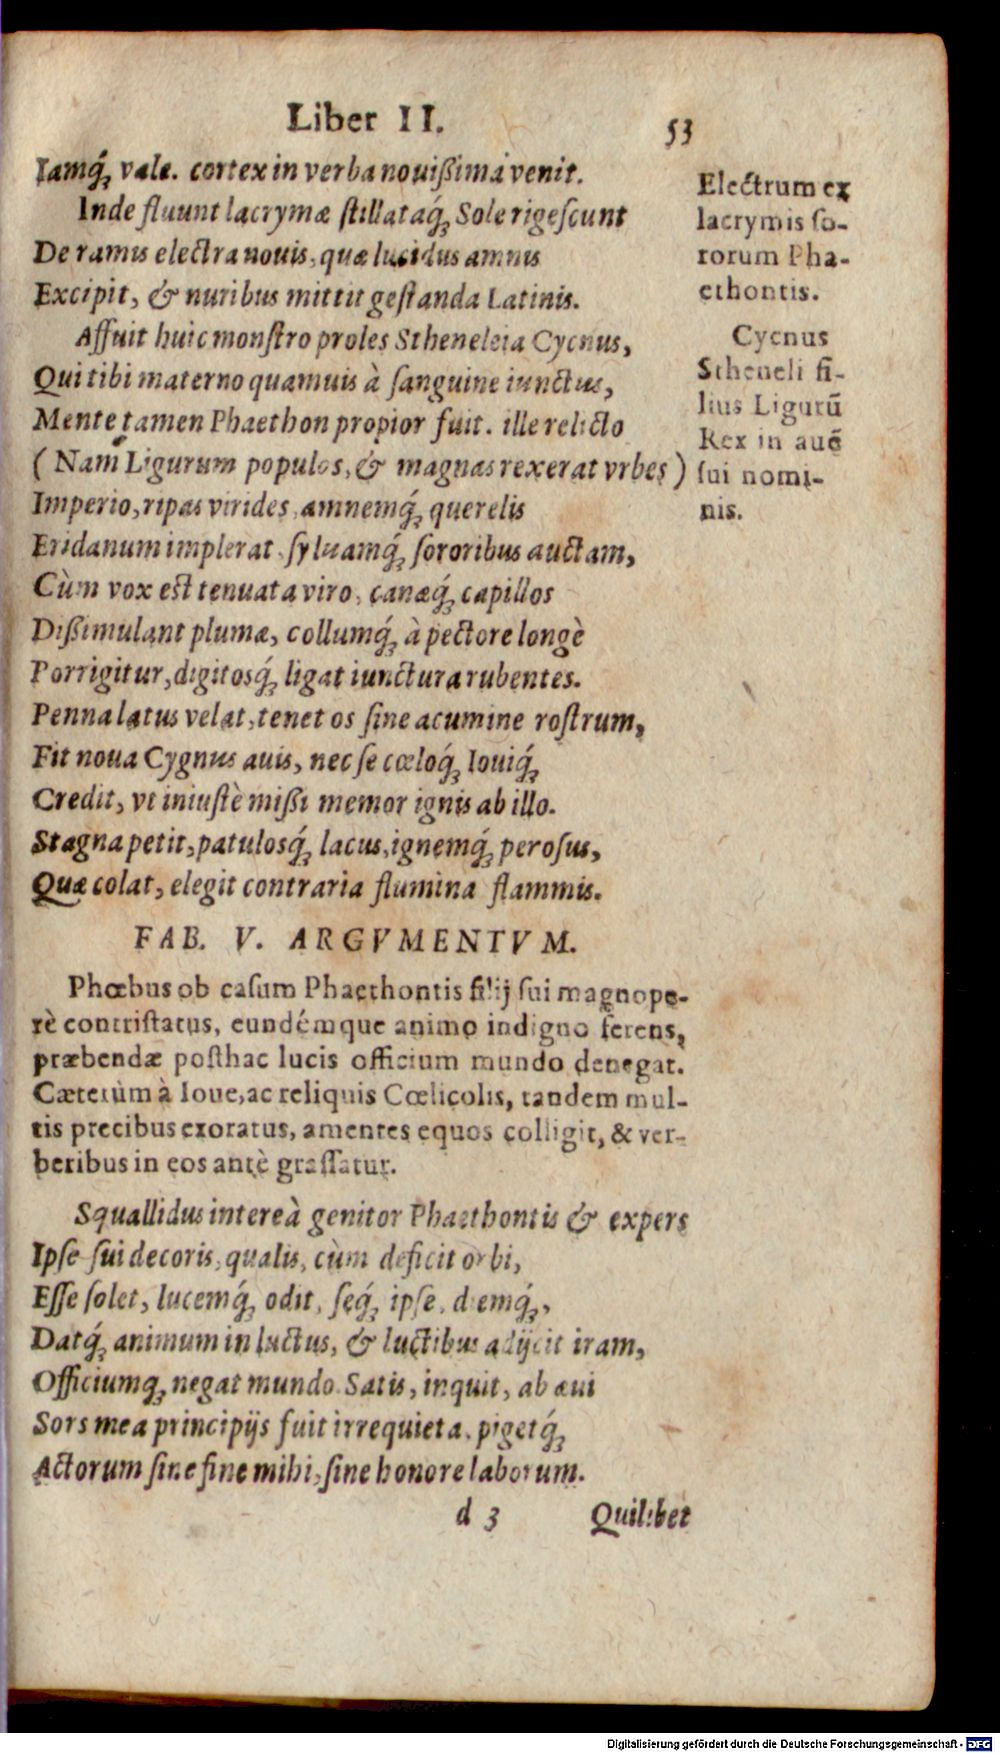 Liber II. 53
Iamq́; vale. cortex in verba nouißima venit.
Inde fluunt lacrymæ stillataq́; Sole rigeſcunt
De ramis electra nouis, quæ lucidus amnis
Excipit, & nuribus mittit geſtanda Latinis.
Affuit huic monſtro proles Stheneleia Cycnus,
Qui tibi materno quamuis à ſanguine iunctus,
Mente tamen Phaethon propior fuit. ille relicto
(Nam Ligurum populos, & magnas rexerat vrbes)
Imperio, ripas virides, amnemq́; querelis
Eridanum implerat, ſyluamq́; ſororibus auctam,
Cùm vox est tenuata viro, canæq́; capillos
Dißimulant plumæ, collumq́; à pectore longè
Porrigitur, digitosq́; ligat iunctura rubentes.
Penna latus velat, tenet os ſine acumine roſtrum,
Fit noua Cygnus auis, nec ſe cœloq́; Iouiq́;
Credit, vt iniuſtè mißi memor ignis ab illo.
Stagna petit, patulosq́; lacus, ignemq́; peroſus,
Quæ colat, elegit contraria flumina flammis.
Electrum ex
lacrymis ſo-
rorum Pha-
ethontis.
Cycnus
Stheneli fi-
lius Ligurũ
Rex in auẽ
ſui nomi-
nis.
FAB. V. ARGVMENTVM.
Phœbus ob caſum Phaethontis filij ſui magnope-
rè contriſtatus, eundémque animo indigno ferens,
præbendæ poſthac lucis officium mundo denegat.
Cæterùm à Ioue, ac reliquis Cœlicolis, tandem mul-
tis precibus exoratus, amentes equos colligit, & ver-
beribus in eos antè graſſatur.
Squallidus intereà genitor Phaethontis & expers
Ipſe ſui decoris, qualis, cùm deficit orbi,
Eſſe ſolet, lucemq́; odit, ſeq́; ipſe, diemq́;,
Datq́; animum in luctus, & luctibus adijcit iram,
Officiumq; negat mundo. Satis, inquit, ab æui
Sors mea principijs fuit irrequieta, pigetq́;
Actorum ſine fine mihi, ſine honore laborum.
d 3 Quilibet
Digitalisierung gefördert durch die Deutsche Forschungsgemeinschaft - DFG